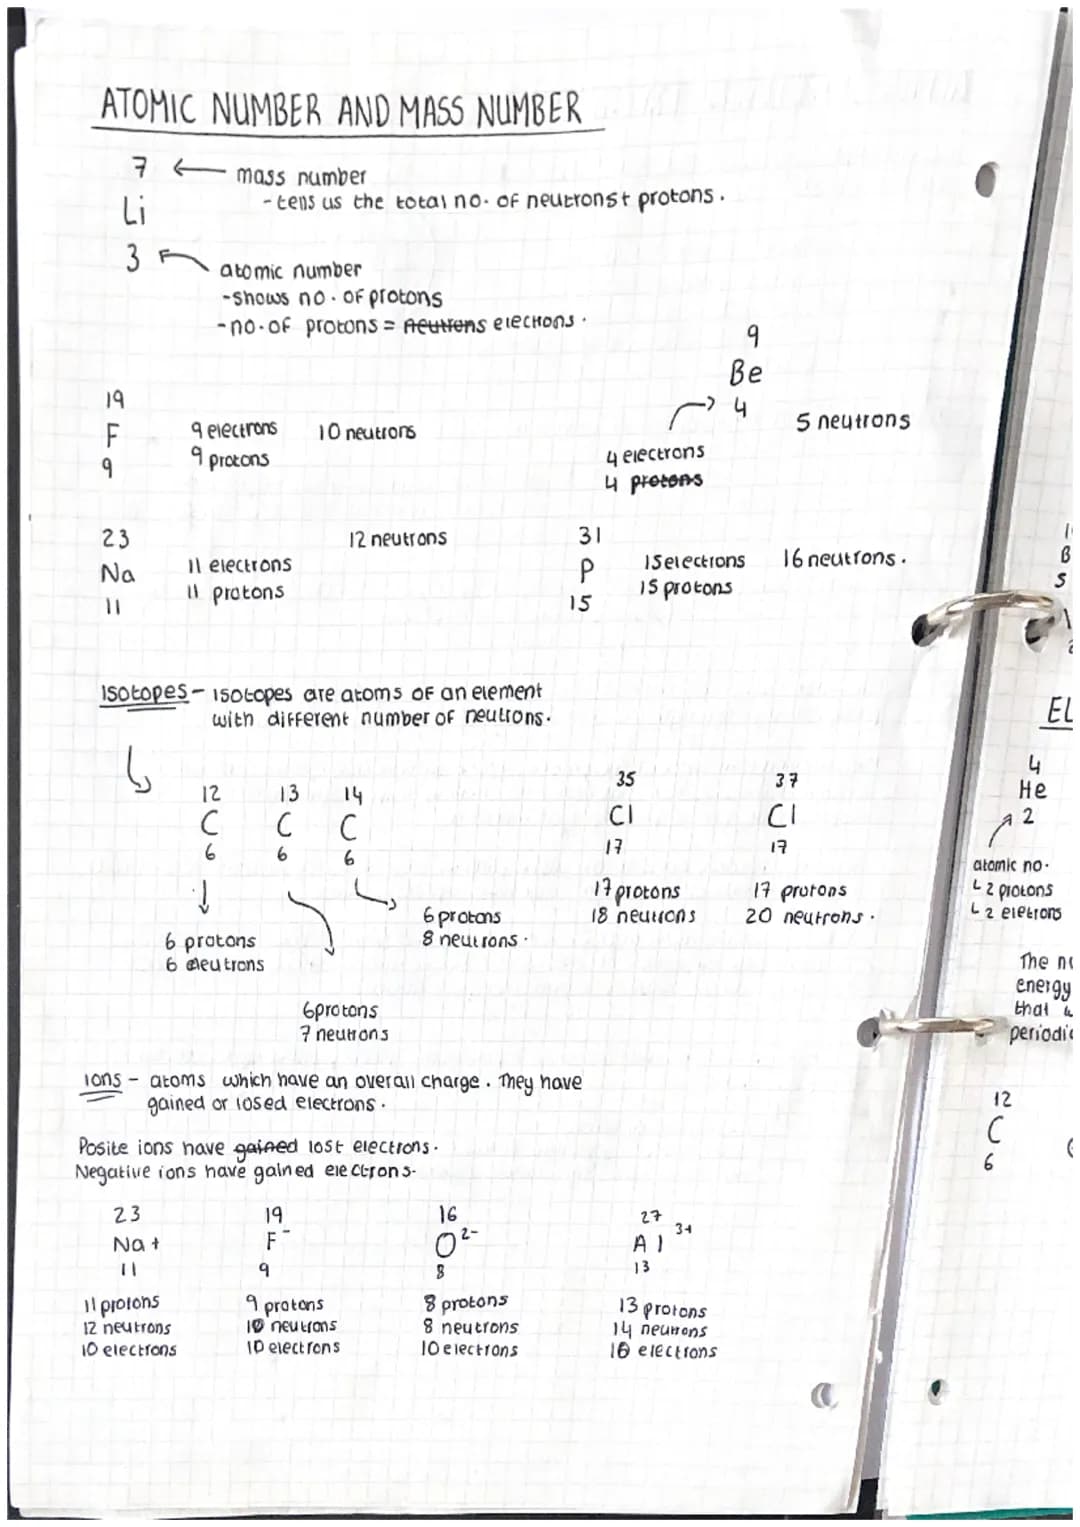 ATOMIC NUMBER AND MASS NUMBER
7 ← mass number
Li - tells us the total no. of neutrons + protons.
3 atomic number
- shows no. of protons
- no. of protons = neutrons elections.
19
F
9
9 electrons 10 neutrons
9 protons
9
Be
4
5 neutrons
4 electrons
4 protons
23
Na
11
12 neutrons
11 electrons
11 protons
31
P
15
15 electrons 16 neutrons.
15 protons
Isotopes - isotopes are atoms of an element
with different number of neutrons.
12 13 14
C C C
6 6 6
35 37
Cl Cl
17 17
17 protons 17 protons
18 neutrons 20 neutrons.
6 protons
8 neutrons.
6 protons
6 neutrons
6 protons
7 neutrons
Ions - atoms which have an overall charge. They have
gained or losed electrons.
Posite ions have gained lost electrons.
Negative ions have gained electrons.
23 19 16 27
Na+ F- O2- Al 3+
11 9 8 13
11 protons 9 protons 8 protons 13 protons
12 neutrons 10 neutrons 8 neutrons 14 neutrons
10 electrons 10 electrons 10 electrons 10 electrons
B
5
EL
4
He
2
atomic no.
2 protons
2 eletrons
The
energy
that
12
C
6